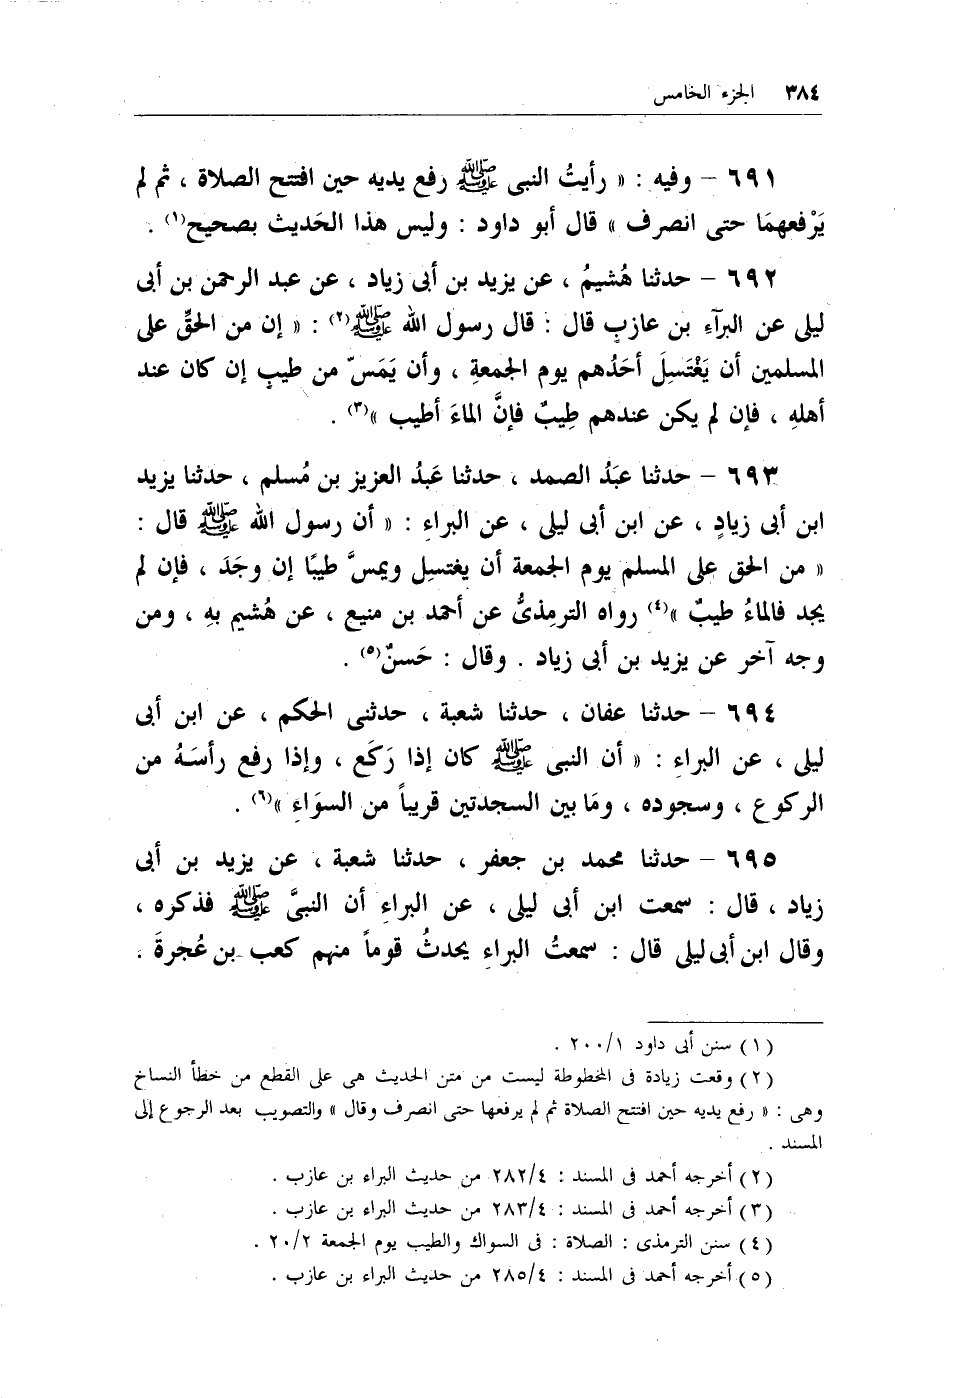 ٣٨٤ الجزء الخامس
٦٩١ – وفيه : « رأيتُ النبى ﷺ رفع يديه حين افتتح الصلاة ، ثم لم
يَرْفعهمَا حتى انصرف » قال أبو داود : وليس هذا الحَديث بصحيح(١) .
٦٩٢ – حدثنا هُشيمُ ، عن يزيد بن أبى زياد ، عن عبد الرحمن بن أبى
ليلى عن البرآءِ بن عازبٍ قال : قال رسول الله ﷺ(٢) : « إن من الحقِّ على
المسلمين أن يَغْتَسِلَ أحَدُهم يوم الجمعةِ ، وأن يَمَسّ من طيبٍ إن كان عند
أهلهِ ، فإن لم يكن عندهم طِيبٌ فإنَّ الماءَ أطيب »(٣) .
٦٩٣ – حدثنا عبَدُ الصمد ، حدثنا عَبدُ العزيز بن مُسلم ، حدثنا يزيد
ابن أبى زيادٍ ، عن ابن أبى ليلى ، عن البراءِ : « أن رسول الله ﷺ قال :
« من الحق على المسلم يوم الجمعة أن يغتسِل ويمسَّ طيبًا إن وجَدَ ، فإن لم
يجد فالماءُ طيبٌ »(٤) رواه الترمِذىُّ عن أحمد بن منيع ، عن هُشيم بهِ ، ومن
وجه آخر عن يزيد بن أبى زياد . وقال : حَسنٌ(٥) .
٦٩٤ – حدثنا عفان ، حدثنا شعبة ، حدثنى الحكم ، عن ابن أبى
ليلى ، عن البراءِ : « أن النبى ﷺ كان إذا رَكَع ، وإذا رفع رأسَهُ من
الركوع ، وسجوده ، ومَا بين السجدتين قريباً من السوَاءِ »(٦) .
٦٩٥ – حدثنا محمد بن جعفر ، حدثنا شعبة ، عن يزيد بن أبى
زياد ، قال : سمعت ابن أبى ليلى ، عن البراءِ أن النبىَّ ﷺ فذكره ،
وقال ابن أبى ليلى قال : سمعتُ البراءِ يحدثُ قوماً منهم كعب بن عُجرةَ .
(١) سنن أبى داود ٢٠٠/١ .
(٢) وقعت زيادة فى المخطوطة ليست من متن الحديث هى على القطع من خطأ النساخ
وهى : « رفع يديه حين افتتح الصلاة ثم لم يرفعها حتى انصرف وقال » والتصويب بعد الرجوع إلى
المسند .
(٢) أخرجه أحمد فى المسند : ٢٨٢/٤ من حديث البراء بن عازب .
(٣) أخرجه أحمد فى المسند : ٢٨٣/٤ من حديث البراء بن عازب .
(٤) سنن الترمذى : الصلاة : فى السواك والطيب يوم الجمعة ٢٠/٢ .
(٥) أخرجه أحمد فى المسند : ٢٨٥/٤ من حديث البراء بن عازب .